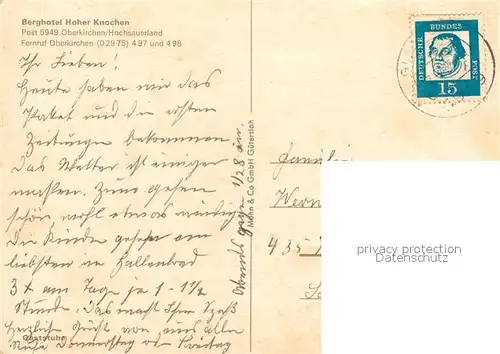 Berghotel Hoher Knochen
Post 5949 Oberkirchen/Hochsauerland
Fernruf Oberkirchen (0 29 75) 4 97 und 4 98
Ihr Lieben!
Heute haben wir das
Paket und die ersten
Zeitungen bekommen
Das Wetter ist einiger
maßen. Zum gehen
schön, wohl etwas windig
Die Kinder gehen am
liebsten in Hallenbad
3x am Tage je 1-1½
Stunde. Das macht Ihnen Spaß
Herzliche Grüße von uns allen
Donnerstag od. Freitag
Gaststube
Abends gegen 1/28
Mohn & Co GmbH Gütersloh
DEUTSCHE
BUNDES
POST
15
Familie
Wern
435
privacy protection
Datenschutz